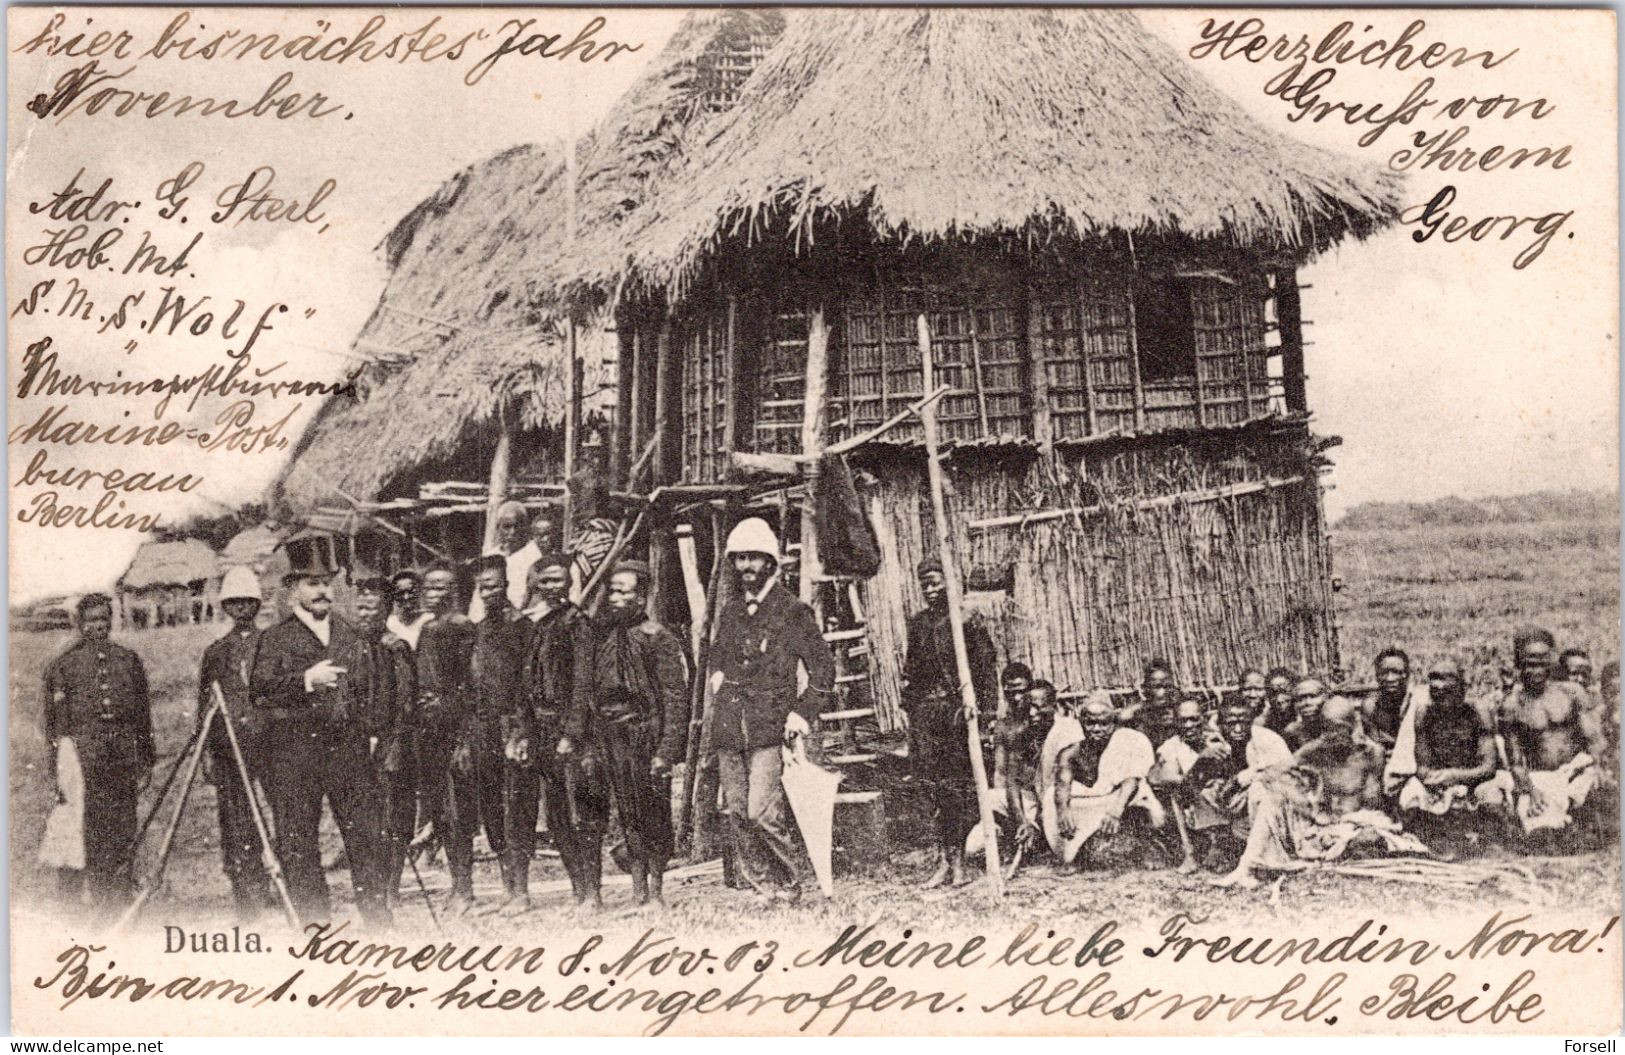 Duala. Kamerun 8. Nov. 03. Meine liebe Freundin Nora!
Bin am 1. Nov. hier eingetroffen. Alles wohl. Bleibe
hier bis nächstes Jahr
November.
Herzlichen
Gruß von
Ihrem
Georg.
Adr: G. Sterl,
Hob. Mt.
S. M. S. "Wolf"
Marinepostbureau
Marine-Post-
bureau
Berlin
Forsell
delcampe.net